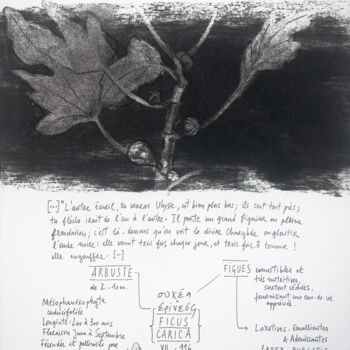 [...] "L'autre Écueil, tu verras Ulysse, est bien plus bas ; ils sont tout près ;
ta flèche irait de l'un à l'autre. Il porte un grand figuier en pleine
frondaison ; c'est là-dessous qu'on voit la divine Charybde engloutir
l'onde noire : elle vomit trois fois chaque jour, et trois fois, ô terreur !
elle engouffre. [...]
ARBUSTE
de 2-10m.
Mésophanérophyte
caducifoliée
Longévité : 200 à 300 ans
Floraison Juin à Septembre
Fécondée et pollinisée par
ἐρίνεός
FICUS
CARICA
VII. 116
FIGUES comestibles et
très nutritives,
surtout séchées,
fournissant une eau-de-vie
appréciée
LAXATIVES. Emollientes
& Adoucissantes